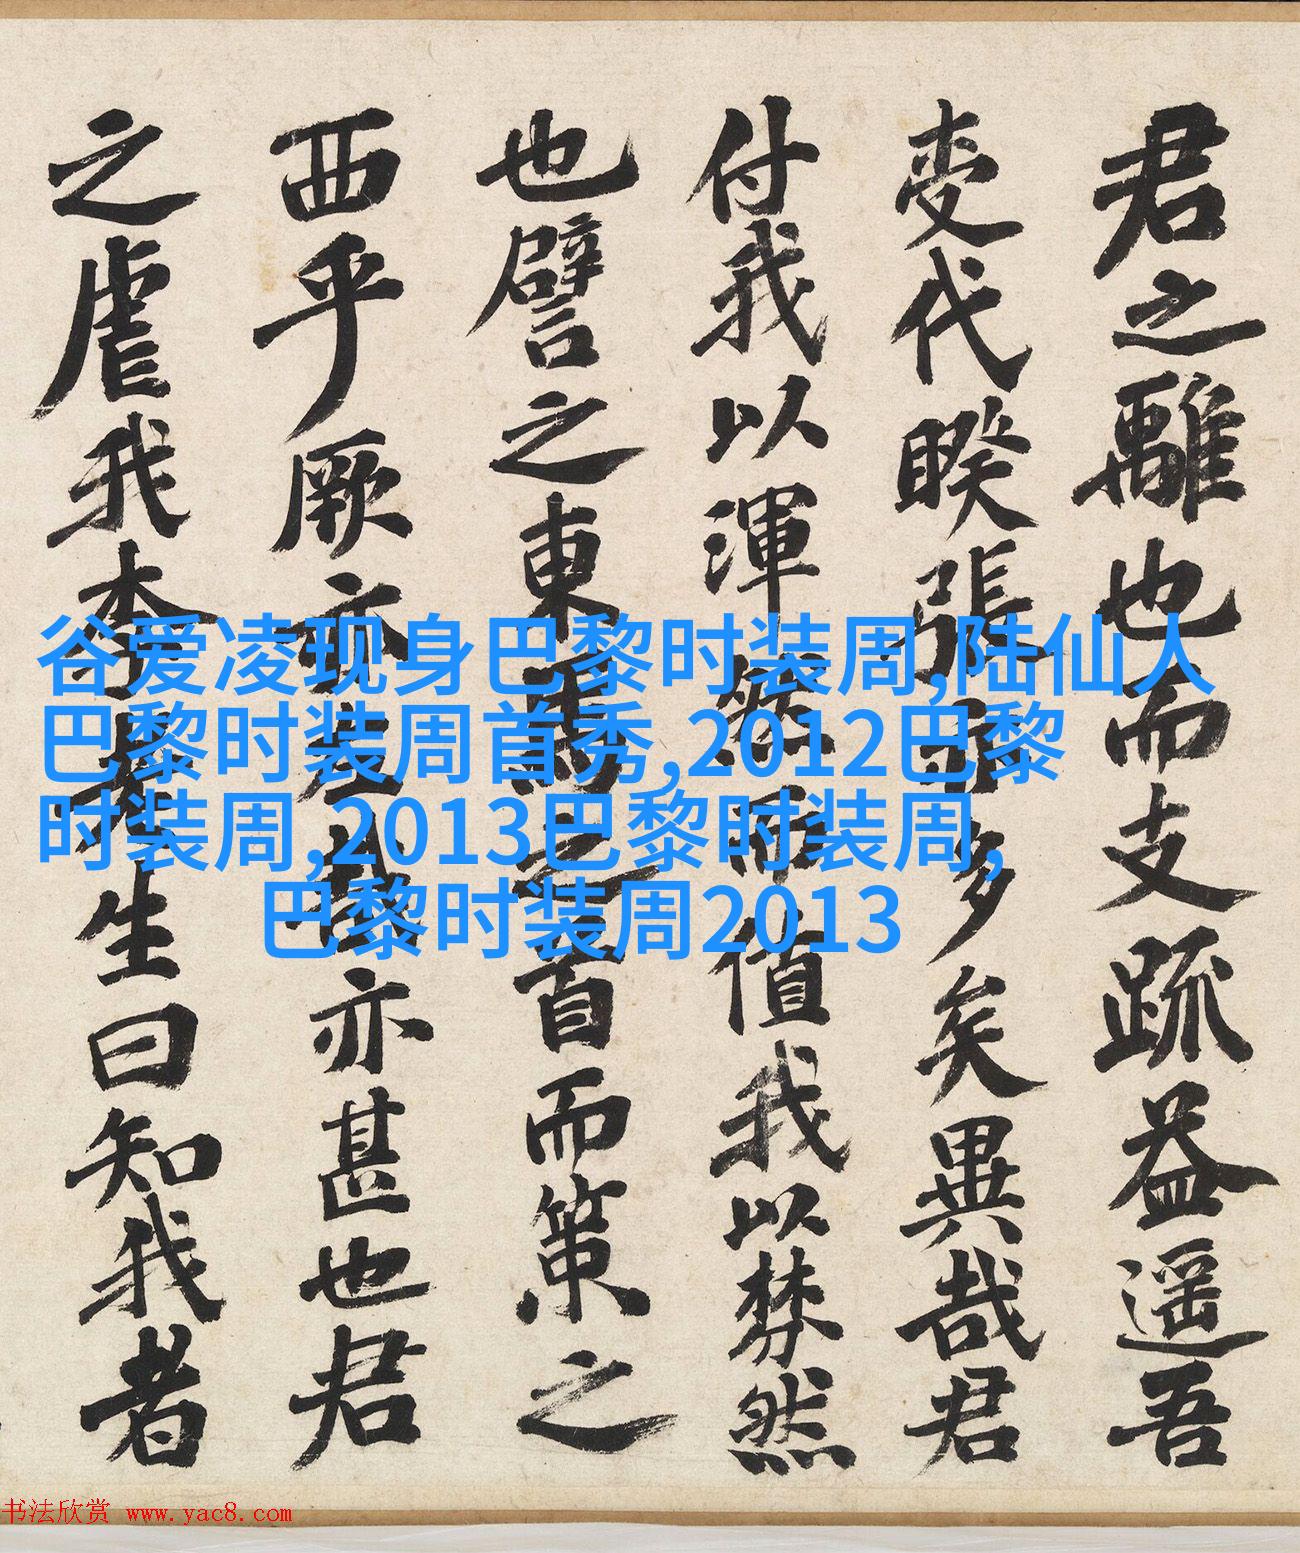 君之離也而支疏益遥吾
代暌張多矣異哉君
付我以渾然而值我以棼然
也譬之東馬之首而策之
西乎厥亦亦甚也君
之虐我生曰知我者
谷爱凌现身巴黎时装周,陆仙人
巴黎时装周首秀,2012巴黎
时装周,2013巴黎时装周,
巴黎时装周2013
书法欣赏 www.yac8.com